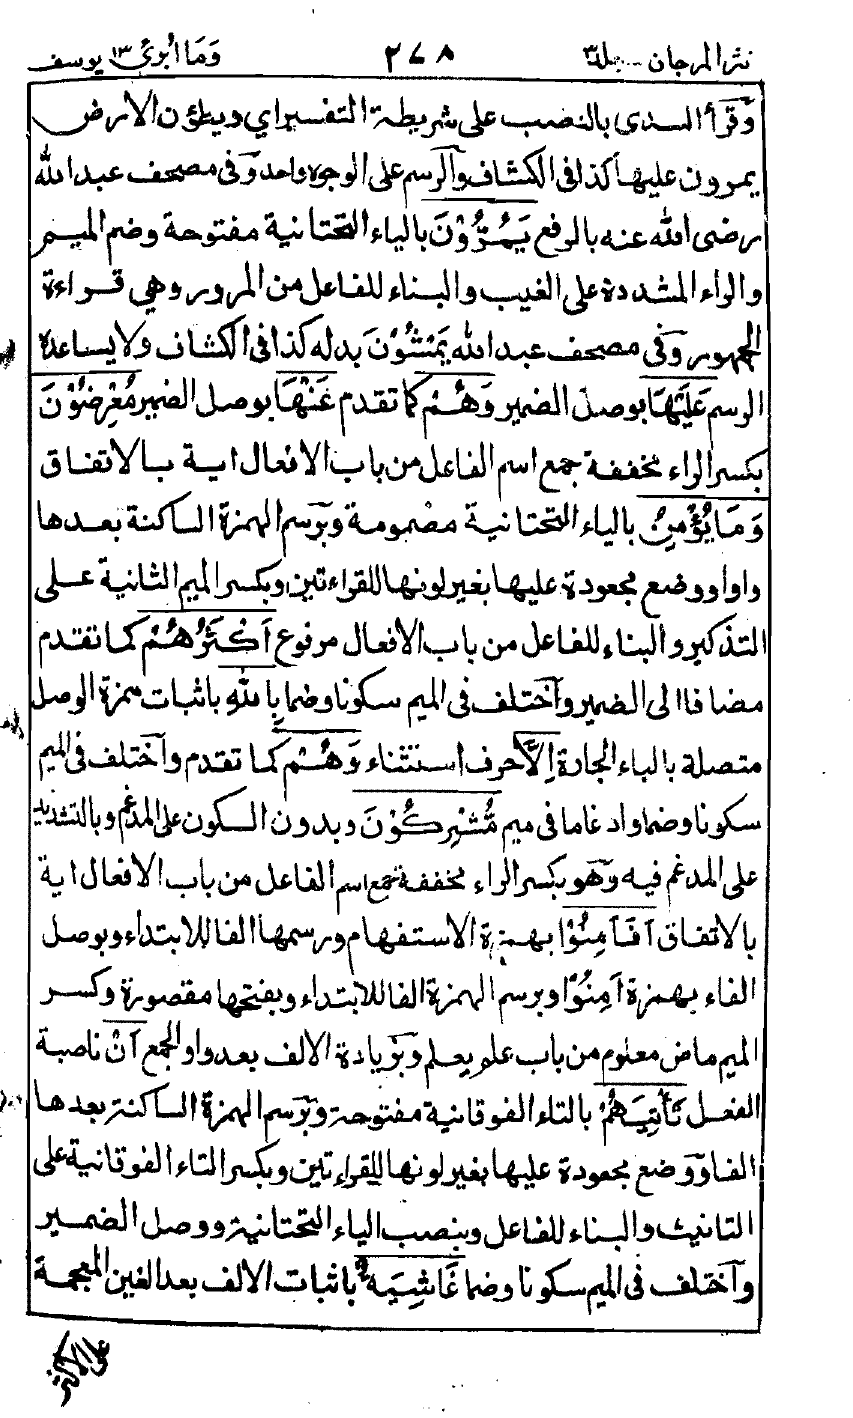 نثر المرجان جلد ٣ ٢٧٨ وَمَا أُبَرِّئُ ١٣ يوسف
وقرأ السدى بالنصب على شريطة التفسير اي ويطؤن الارض
يمرون عليها كذا فى الكشاف والرسم على الوجوه واحد وفى مصحف عبد الله
رضى الله عنه بالرفع يَمُرُّوْنَ بالياء التحتانية مفتوحة وضم الميم
والراء المشددة على الغيب والبناء للفاعل من المرور وهي قراءة
الجمهور وفى مصحف عبد الله يَمْشُوْنَ بدله كذا فى الكشاف ولا يساعده
الرسم عَلَيْهَا بوصل الضمير وَهُمْ كما تقدم عَنْهَا بوصل الضمير مُعْرِضُوْنَ
بكسر الراء مخففة جمع اسم الفاعل من باب الافعال اية بالاتفاق
وَمَا يُؤْمِنُ بالياء التحتانية مضمومة وبرسم الهمزة الساكنة بعدها
واوا ووضع مجعودة عليها بغير لونها للقراءتين وبكسر الميم الثانية على
التذكير والبناء للفاعل من باب الافعال مرفوع اَكْثَرُهُمْ كما تقدم
مضافا الى الضمير واختلف فى الميم سكونا وضما بِاللهِ باثبات همزة الوصل
متصلة بالباء الجارة اِلَّا حرف استثناء وَهُمْ كما تقدم واختلف فى الميم
سكونا وضما وادغاما فى ميم مُّشْرِكُوْنَ وبدون السكون على المدغم وبالتشديد
على المدغم فيه وهو بكسر الراء مخففة جمع اسم الفاعل من باب الافعال اية
بالاتفاق اَفَاَمِنُوْا بهمزة الاستفهام ورسمها الفا للابتداء وبوصل
الفاء بهمزة اَمِنُوْا وبرسم الهمزة الفا للابتداء وبفتحها مقصورة وكسر
الميم ماض معلوم من باب علم يعلم وبزيادة الالف بعد واو الجمع اَنْ ناصبة
الفعل تَأْتِيَهُمْ بالتاء الفوقانية مفتوحة وبرسم الهمزة الساكنة بعدها
الفا ووضع مجعودة عليها بغير لونها للقراءتين وبكسر التاء الفوقانية على
التانيث والبناء للفاعل وبنصب الياء التحتانية ووصل الضمير
واختلف فى الميم سكونا وضما غَاشِيَةٌ باثبات الالف بعد الغين المعجمة